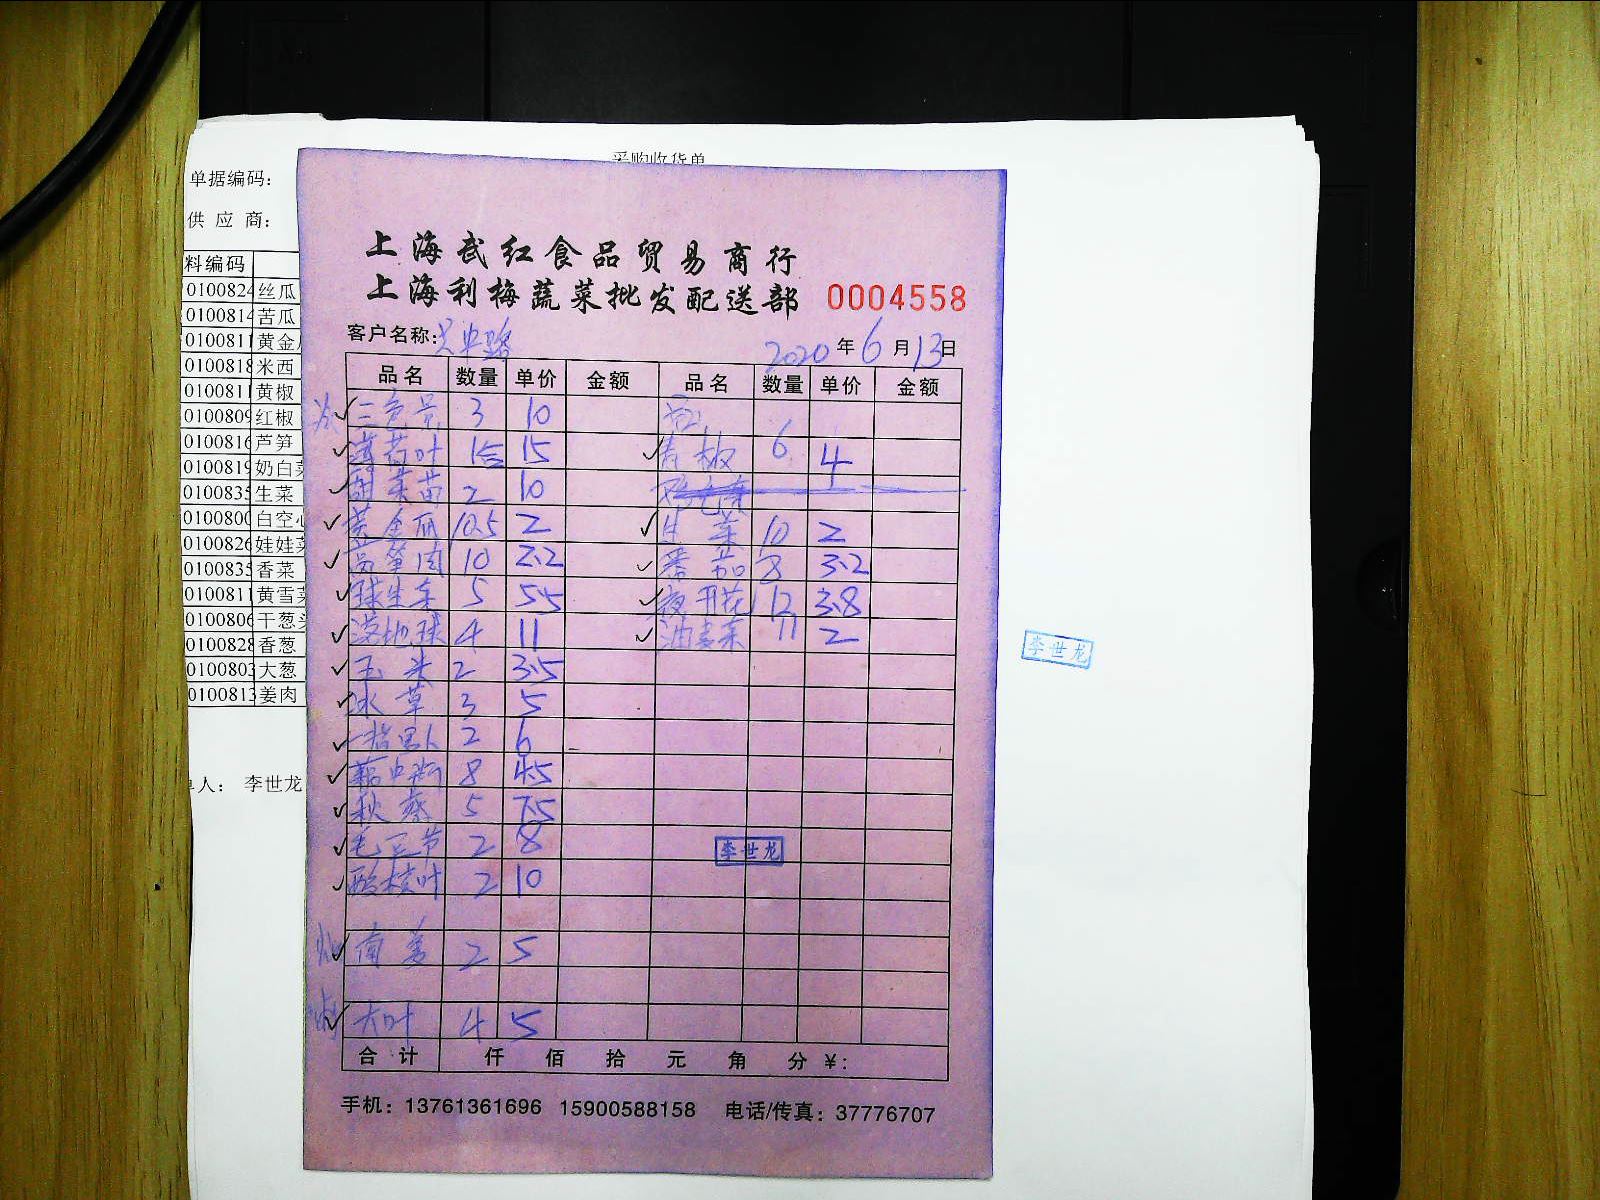 采购收货单
单据编码:
供 应 商:
料编码
0100824 丝瓜
0100814 苦瓜
010081 黄金
0100818 米西
010081 黄椒
010080 红椒
0100816 芦笋
0100819 奶白菜
0100835 生菜
0100800 白空心
0100826 娃娃菜
0100835 香菜
010081 黄雪菜
0100806 干葱头
0100828 香葱
0100803 大葱
0100813 姜肉
人: 李世龙
上海武红食品贸易商行
上海利梅蔬菜批发配送部 0004558
客户名称:
2020 年 6 月 13 日
品名 数量 单价 金额 品名 数量 单价 金额
三色堇 3 10
薄荷叶 1盒 15 青椒 6 4
甜菜苗 2 10
黄金瓜 10.5 2 生菜 10 2
莴笋肉 10 2.2 番茄 8 3.2
球生菜 5 5.5 夜开花 12 3.8
4 11 油麦菜 11 2
玉米 2 3.5
冰草 3 5
2 6
8 4.5
秋葵 5 7.5
毛豆节 2 8
2 10
李世龙
南姜 2 5
大叶 4 5
合计 仟 佰 拾 元 角 分 ¥:
手机: 13761361696 15900588158 电话/传真: 37776707
李世龙